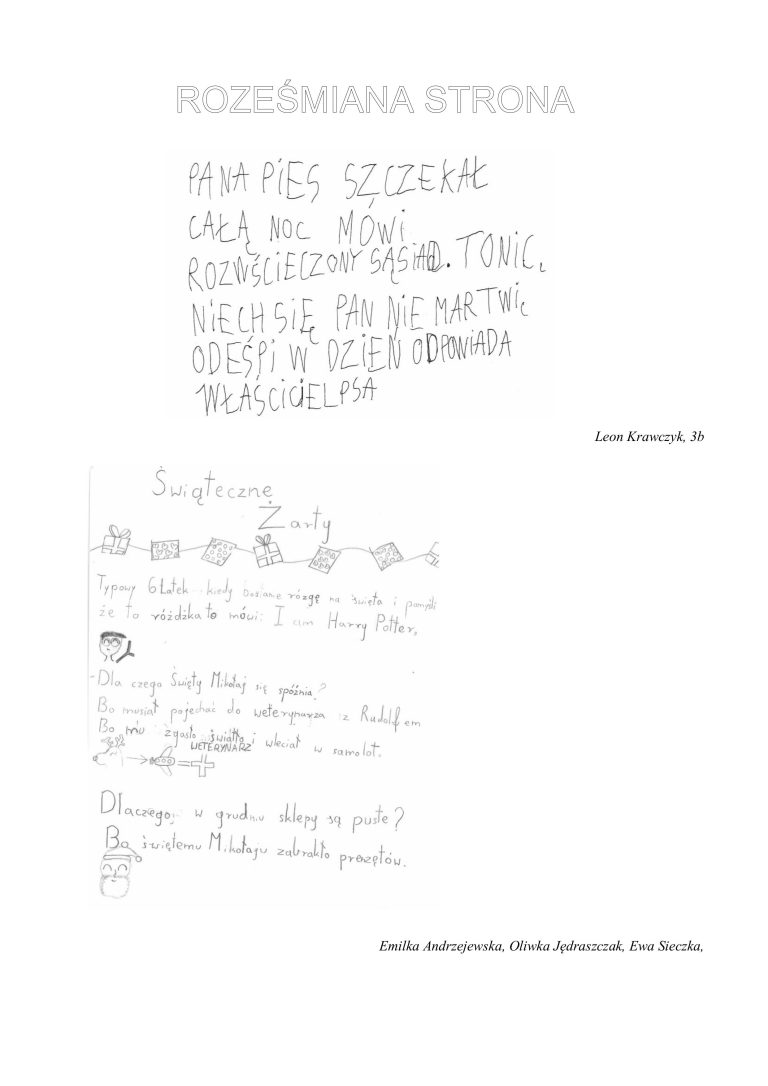 ROZEŚMIANA STRONA
PANA PIES SZCZEKAŁ
CAŁĄ NOC MÓWI
ROZWŚCIECZONY SĄSIAD. TONIC,
NIECH SIĘ PAN NIE MARTWI,
ODEŚPI W DZIEŃ ODPOWIADA
WŁAŚCICIEL PSA
Leon Krawczyk, 3b
Świąteczne
Żarty
Typowy 6 latek kiedy dostane rózgę na święta i pomyśli
że to różdżka to mówi: I am Harry Potter,
-Dla czego Święty Mikołaj się spóźnia?
Bo musiał pojechać do weterynarza z Rudolfem
Bo mu zgasło światło i wleciał w samolot.
WETERYNARZ
Dlaczego w grudniu sklepy są puste?
Bo świętemu Mikołaju zabrakło prezętów.
Emilka Andrzejewska, Oliwka Jędraszczak, Ewa Sieczka,